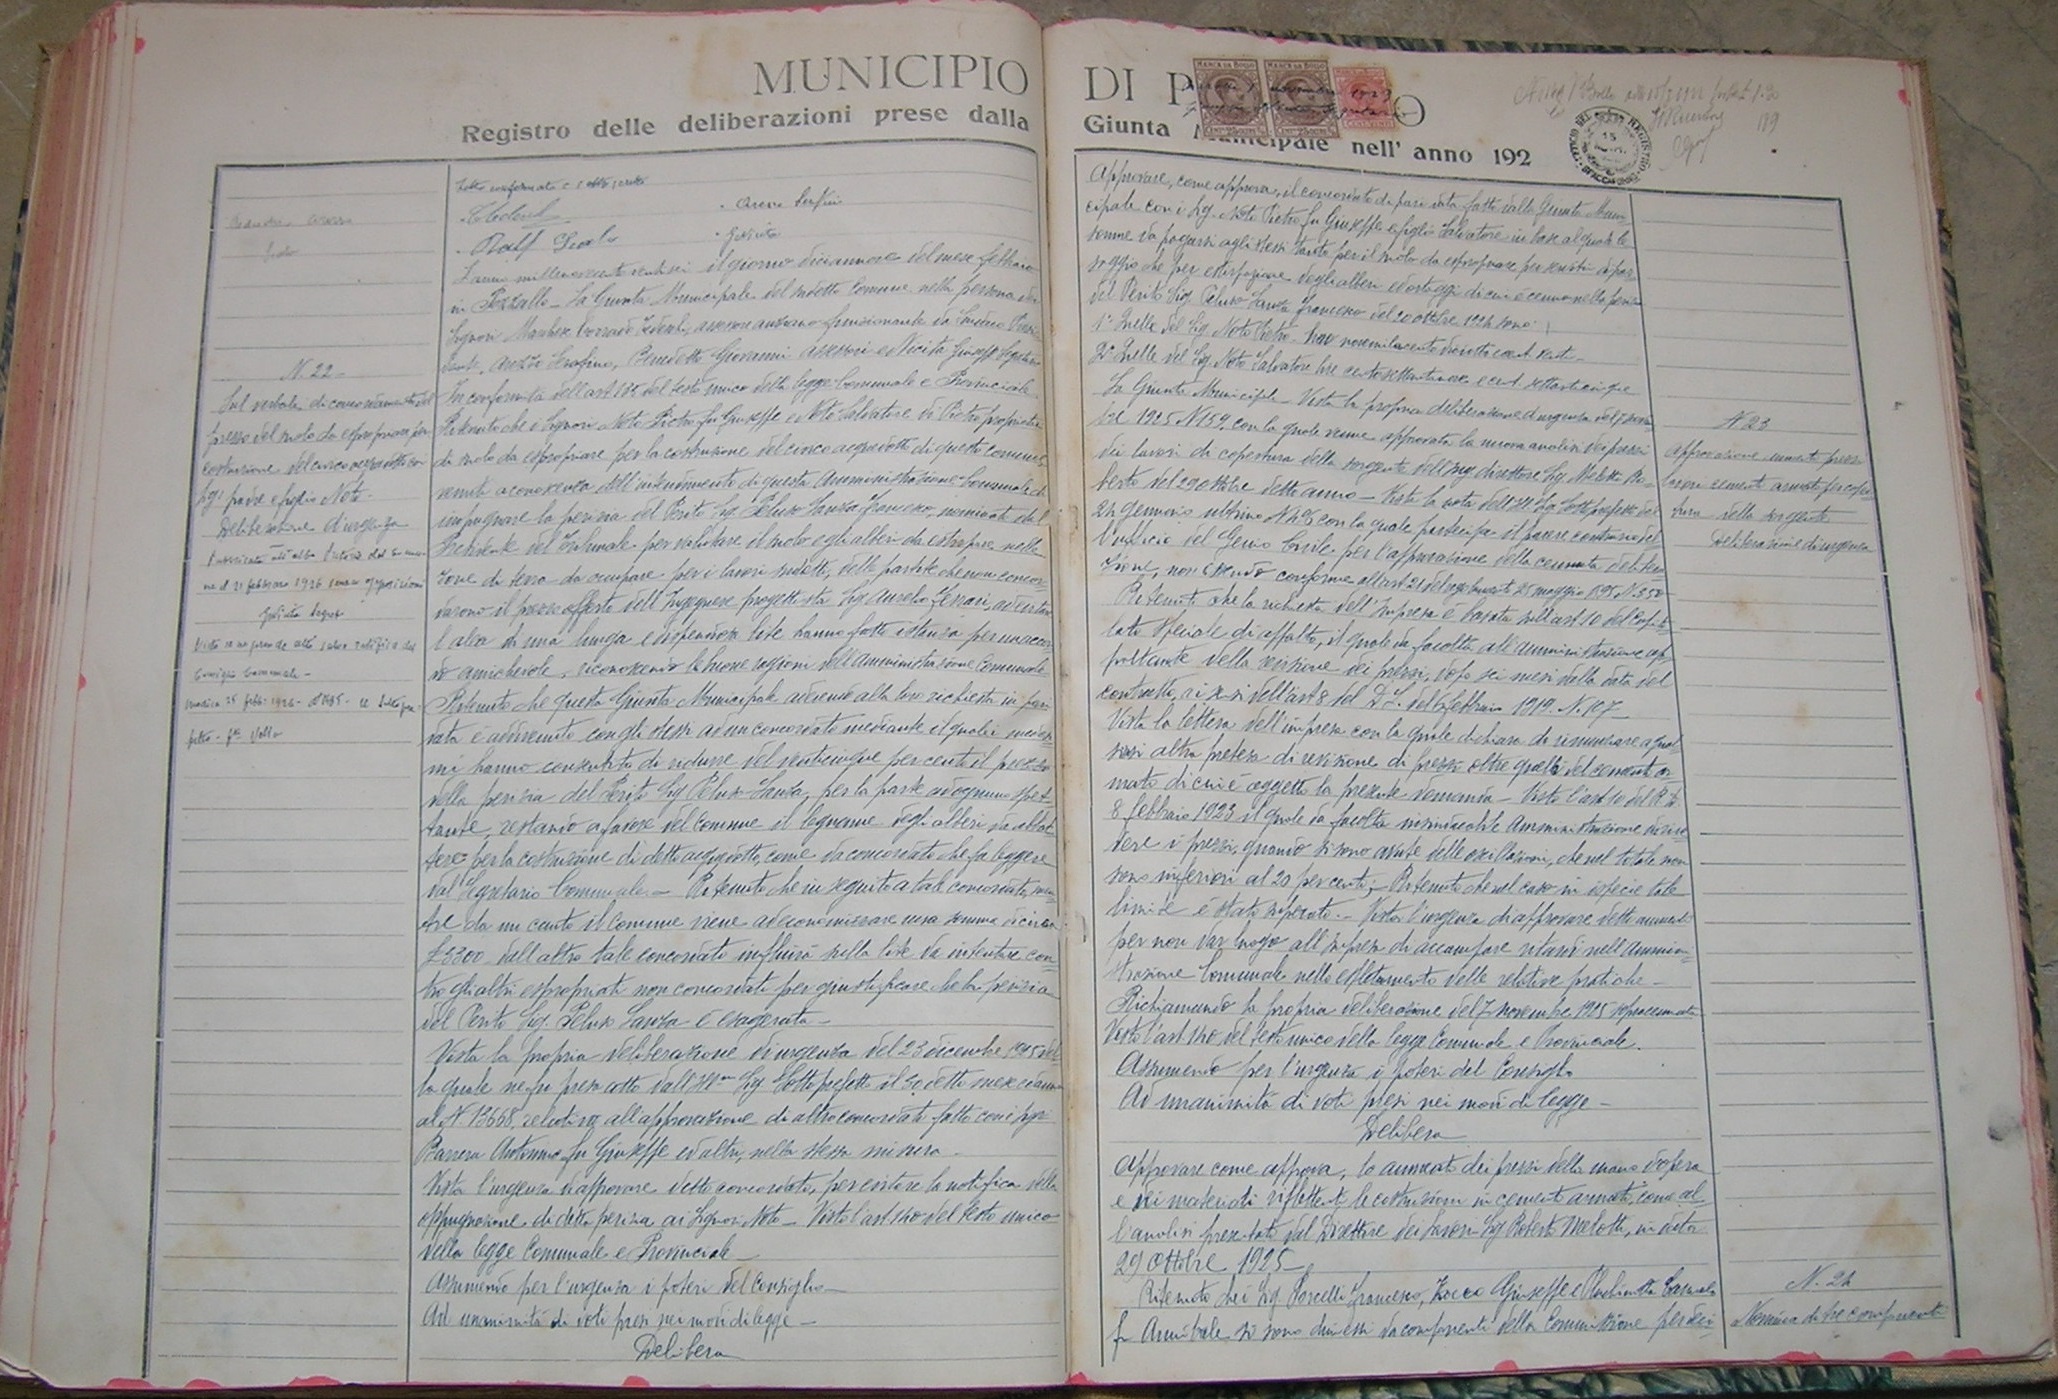 MUNICIPIO
Registro delle deliberazioni prese dalla
Letto confermato e sottoscritto
L'anno millenovecentoventisei il giorno diciannove del mese febbraio
in Pozzallo - La Giunta Municipale del suddetto Comune nella persona dei
Signori
Serafino, Benedetto Giovanni assessori e Nicita Giuseppe Segretario
In conformità dell'art. del testo unico della legge Comunale e Provinciale
Ritenuto che i Signori Noto Pietro fu Giuseppe e Noto Salvatore di Pietro proprietari
di suolo da espropriare per la costruzione del civico acquedotto di questo comune,
venuti a conoscenza dell'intendimento di questa Amministrazione Comunale di
impugnare la perizia del Perito Sig. Peluso Lanza Francesco, nominato dal
Presidente del Tribunale per valutare il suolo e gli alberi da estirpare nelle
zone di terra da occupare per i lavori sudetti, delle partite che non concor-
darono il prezzo offerto dell'Ingegnere progettista Sig. Aurelio Ferrari, ad evitare
l'alea di una lunga e dispendiosa lite hanno fatto istanza per un accor-
do amichevole, riconoscendo le buone ragioni dell'Amministrazione Comunale
Ritenuto che questa Giunta Municipale aderendo alla loro richiesta in pari
data è addivenuta con gli stessi ad un concordato mediante il quale i medesi-
mi hanno consentito di ridurre del venticinque per cento il prezzo
della perizia del Perito Sig. Peluso Lanza, per la parte ad ognuno spet-
tante, restando a favore del comune il legname degli alberi da abbat-
tere per la costruzione di detto acquedotto, come da concordato che fa leggere
dal Segretario Comunale. - Ritenuto che in seguito a tale concordato, men-
tre da un canto il Comune viene ad economizzare una somma di circa
£ 5300, dall'altro tale concordato influirà sulla lite da intentare con-
tro gli altri espropriati non concordati per giustificare che la perizia
del Perito Sig. Peluso Lanza è esagerata -
Vista la propria deliberazione d'urgenza del 23 dicembre 1925 del-
la quale negò presa d'atto dall'Ill.mo Sig. Sottoprefetto il 30 detto mese ed anno
al N. 13668, relativa all'approvazione di altro concordato fatto con i Sigri
Barrera Antonino fu Giuseppe ed altri, nella stessa misura -
Vista l'urgenza d'approvare detto concordato, per evitare la notifica della
oppugnazione di detta perizia ai Signori Noto - Visto l'art. 140 del testo unico
della legge Comunale e Provinciale -
Assumendo per l'urgenza i poteri del Consiglio -
Ad unanimità di voti presi nei modi di legge -
Delibera
N. 22 -
Sul verbale di concordamento del
prezzo del suolo da espropriare per
costruzione del civico acquedotto coi
Sigi padre e figlio Noto -
Deliberazione d'urgenza
ne il 21 febbraio 1926 senza opposizioni
Consiglio Comunale -
DI P
Giunta Municipale nell' anno 192
MARCA DA BOLLO
MARCA DA BOLLO
Approvare, come approva, il concordato di pari data fatto dalla Giunta Muni-
cipale con i Sig. Noto Pietro fu Giuseppe e figlio Salvatore in base al quale le
somme da pagarsi agli stessi tanto per il suolo da espropriare per servitù di pas-
saggio che per estirpazione degli alberi ed ortaggi di cui è cenno nella perizia
del Perito Sig. Peluso Lanza Francesco del 20 ottobre 1924 sono:
1° Quelle del Sig. Noto Pietro
2° Quelle del Sig. Noto Salvatore lire centosettantanove e cent. settantacinque
La Giunta Municipale - Vista la propria deliberazione d'urgenza del 7 novem-
bre 1925 N. 159, con la quale venne approvata la nuova analisi dei prezzi
dei lavori di copertura della sorgente dell'Ing. direttore Sig. Melotti Ro-
berto del 29 ottobre detto anno - Vista la nota dell'Ill. Sig. Sottoprefetto del
24 Gennaio ultimo con la quale partecipa il parere contrario del-
l'ufficio del Genio Civile per l'approvazione della cennata delibera-
zione, non essendo conforme all'art. 21 del regolamento 25 maggio 1895 N. 350
Ritenuto che la richiesta dell'Impresa è basata sull'art. 10 del Capito-
lato Speciale di appalto, il quale dà facoltà all'amministrazione ap-
paltante della revisione dei prezzi, dopo sei mesi dalla data del
contratto, ai sensi dell'art. 8 del D. L. del 6 febbraio 1919. N. 107
Vista la lettera dell'impresa con la quale dichiara di rinunciare a qual-
siasi altra pretesa di revisione di prezzi oltre quelli del cemento ar-
mato di cui è oggetto la presente domanda - Visto l'art. 10 del R. D.
8 febbraio 1923 il quale dà facoltà insindacabile Amministrazione di rive-
dere i prezzi, quando vi sono avute delle oscillazioni, che nel totale non
sono inferiori al 20 per cento; - Ritenuto che nel caso in ispecie tale
limite è stato superato. - Vista l'urgenza di approvare detti aumenti
per non dar luogo all'impresa di accampare ritardi nell'Ammini-
strazione Comunale nello espletamento delle relative pratiche -
Richiamando la propria deliberazione del 7 novembre 1925 sopracennata
Visto l'art. 140 del testo unico della legge Comunale e Provinciale.
Assumendo per l'urgenza i poteri del Consiglio
Ad unanimità di voti presi nei modi di legge -
Delibera
Approvare come approva, lo aumento dei prezzi della mano d'opera
e dei materiali riflettenti le costruzioni in cemento armato, come al-
l'analisi presentata dal Direttore dei lavori Sig. Roberto Melotti, in data
29 Ottobre 1925
Ritenuto che i Sig. Porcelli Francesco, Rocco Giuseppe e
fu Annibale si sono dimessi da componenti della Commissione per
N. 23
Approvazione aumento prezzi
lavori cemento armato per coper-
tura della sorgente
Deliberazione d'urgenza
N. 24
Nomina di tre componenti